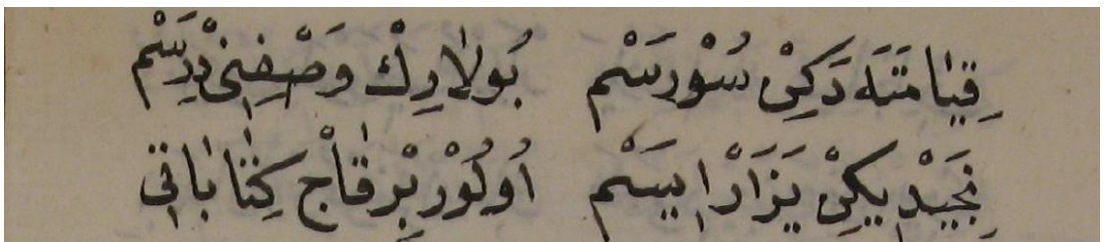 قِيٰامَتَه دَكِنْ سُوْرسَمْ بُولارِكْ وَصْفِنِى دِرسَمْ
نِجَيْدِيكِنْ يَزَارْ اِيسَمْ اُوكُوْر بِرْقَاجْ كِتَابَاتِى